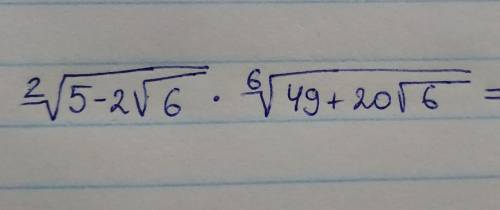 ²√(5-2√6) · ⁶√(49+20√6) =